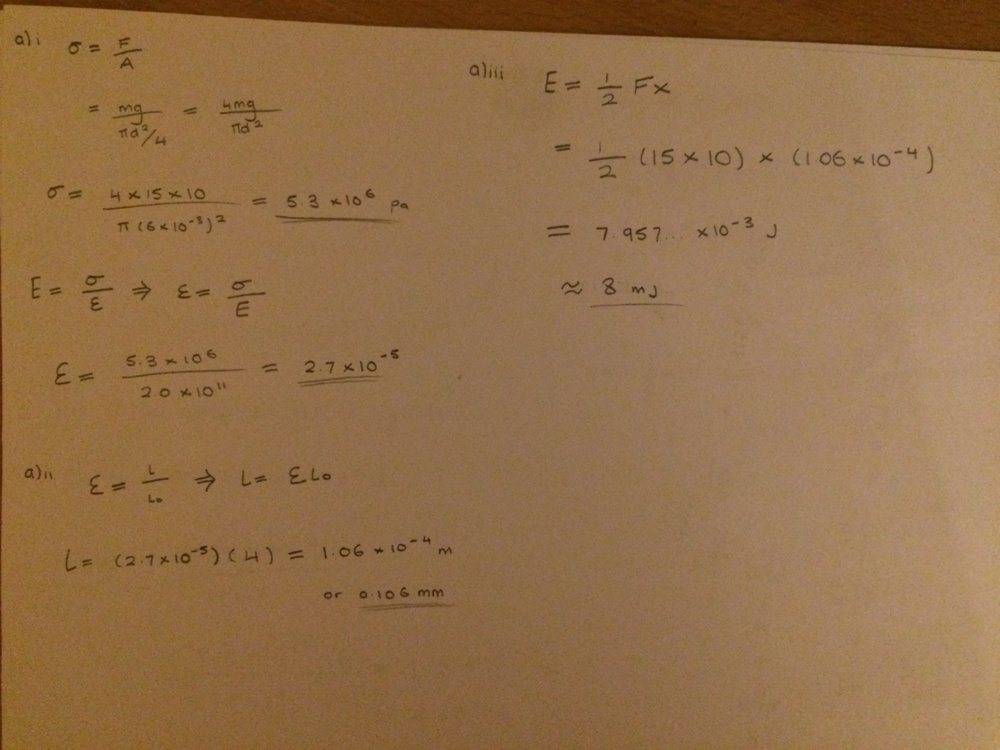 a)i σ = F/A
= mg/πd²/4 = 4mg/πd²
σ = 4×15×10/π(6×10⁻³)² = 5.3 ×10⁶ pa
E = σ/ε ⇒ ε = σ/E
ε = 5.3×10⁶/2.0×10¹¹ = 2.7×10⁻⁵
a)ii ε = L/L₀ ⇒ L = εL₀
L = (2.7×10⁻⁵)(4) = 1.06 ×10⁻⁴ m
or 0.106 mm
a)iii E = 1/2 Fx
= 1/2 (15×10) × (1.06×10⁻⁴)
= 7.957... ×10⁻³ J
≈ 8 mJ